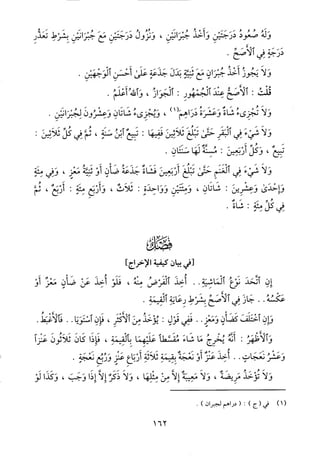 وَلَهُ صُعُودُ دَرَجَتَيْنِ وَأَخْذُ جُبْرَانَيْنِ ، وَنُزُولُ دَرَجَتَيْنِ مَعَ جُبْرَانَيْنِ بِشَرْطِ تَعَذُّرِ
دَرَجَةٍ فِي الْأَصَحِّ .
وَلَا يَجُوزُ أَخْذُ جُبْرَانٍ مَعَ ثَنِيَّةٍ بَدَلَ جَذَعَةٍ عَلَى أَحْسَنِ الْوَجْهَيْنِ .
قُلْتُ : الْأَصَحُّ عِنْدَ الْجُمْهُورِ : الْجَوَازُ ، وَاللهُ أَعْلَمُ .
وَلَا تُجْزِىءُ شَاةٌ وَعَشَرَةُ دَرَاهِمَ(١) ، وَيُجْزِىءُ شَاتَانِ وَعِشْرُونَ لِجُبْرَانَيْنِ .
وَلَا شَيْءَ فِي الْبَقَرِ حَتَّى تَبْلُغَ ثَلَاثِينَ فَفِيهَا : تَبِيعٌ ابْنُ سَنَةٍ ، ثُمَّ فِي كُلِّ ثَلَاثِينَ :
تَبِيعٌ ، وَكُلِّ أَرْبَعِينَ : مُسِنَّةٌ لَهَا سَنَتَانِ .
وَلَا شَيْءَ فِي الْغَنَمِ حَتَّى تَبْلُغَ أَرْبَعِينَ فَشَاةٌ جَذَعَةُ ضَأْنٍ أَوْ ثَنِيَّةُ مَعْزٍ ، وَفِي مِئَةٍ
وَإِحْدَى وَعِشْرِينَ : شَاتَانِ ، وَمِئَتَيْنِ وَوَاحِدَةٍ : ثَلَاثٌ ، وَأَرْبَعِ مِئَةٍ : أَرْبَعٌ ، ثُمَّ
فِي كُلِّ مِئَةٍ : شَاةٌ .
فَصْلٌ
[في بيان كيفية الإخراج]
إِنِ اتَّحَدَ نَوْعُ الْمَاشِيَةِ.. أُخِذَ الْفَرْضُ مِنْهُ ، فَلَوْ أَخَذَ عَنْ ضَأْنٍ مَعْزًا أَوْ
عَكْسَهُ.. جَازَ فِي الْأَصَحِّ بِشَرْطِ رِعَايَةِ الْقِيمَةِ .
وَإِنِ اخْتَلَفَ كَضَأْنٍ وَمَعْزٍ.. فَفِي قَوْلٍ : يُؤْخَذُ مِنَ الْأَكْثَرِ ، فَإِنِ اسْتَوَيَا.. فَالْأَغْبَطُ .
وَالْأَظْهَرُ : أَنَّهُ يُخْرِجُ مَا شَاءَ مُقَسَّطًا عَلَيْهِمَا بِالْقِيمَةِ ، فَإِذَا كَانَ ثَلَاثُونَ عَنْزًا
وَعَشْرُ نَعَجَاتٍ.. أَخَذَ عَنْزًا أَوْ نَعْجَةً بِقِيمَةِ ثَلَاثَةِ أَرْبَاعِ عَنْزٍ وَرُبُعِ نَعْجَةٍ .
وَلَا تُؤْخَذُ مَرِيضَةٌ ، وَلَا مَعِيبَةٌ إِلَّا مِنْ مِثْلِهَا ، وَلَا ذَكَرٌ إِلَّا إِذَا وَجَبَ ، وَكَذَا لَوْ
(١) في (ج) : ( دراهم لجبران ) .
١٦٢